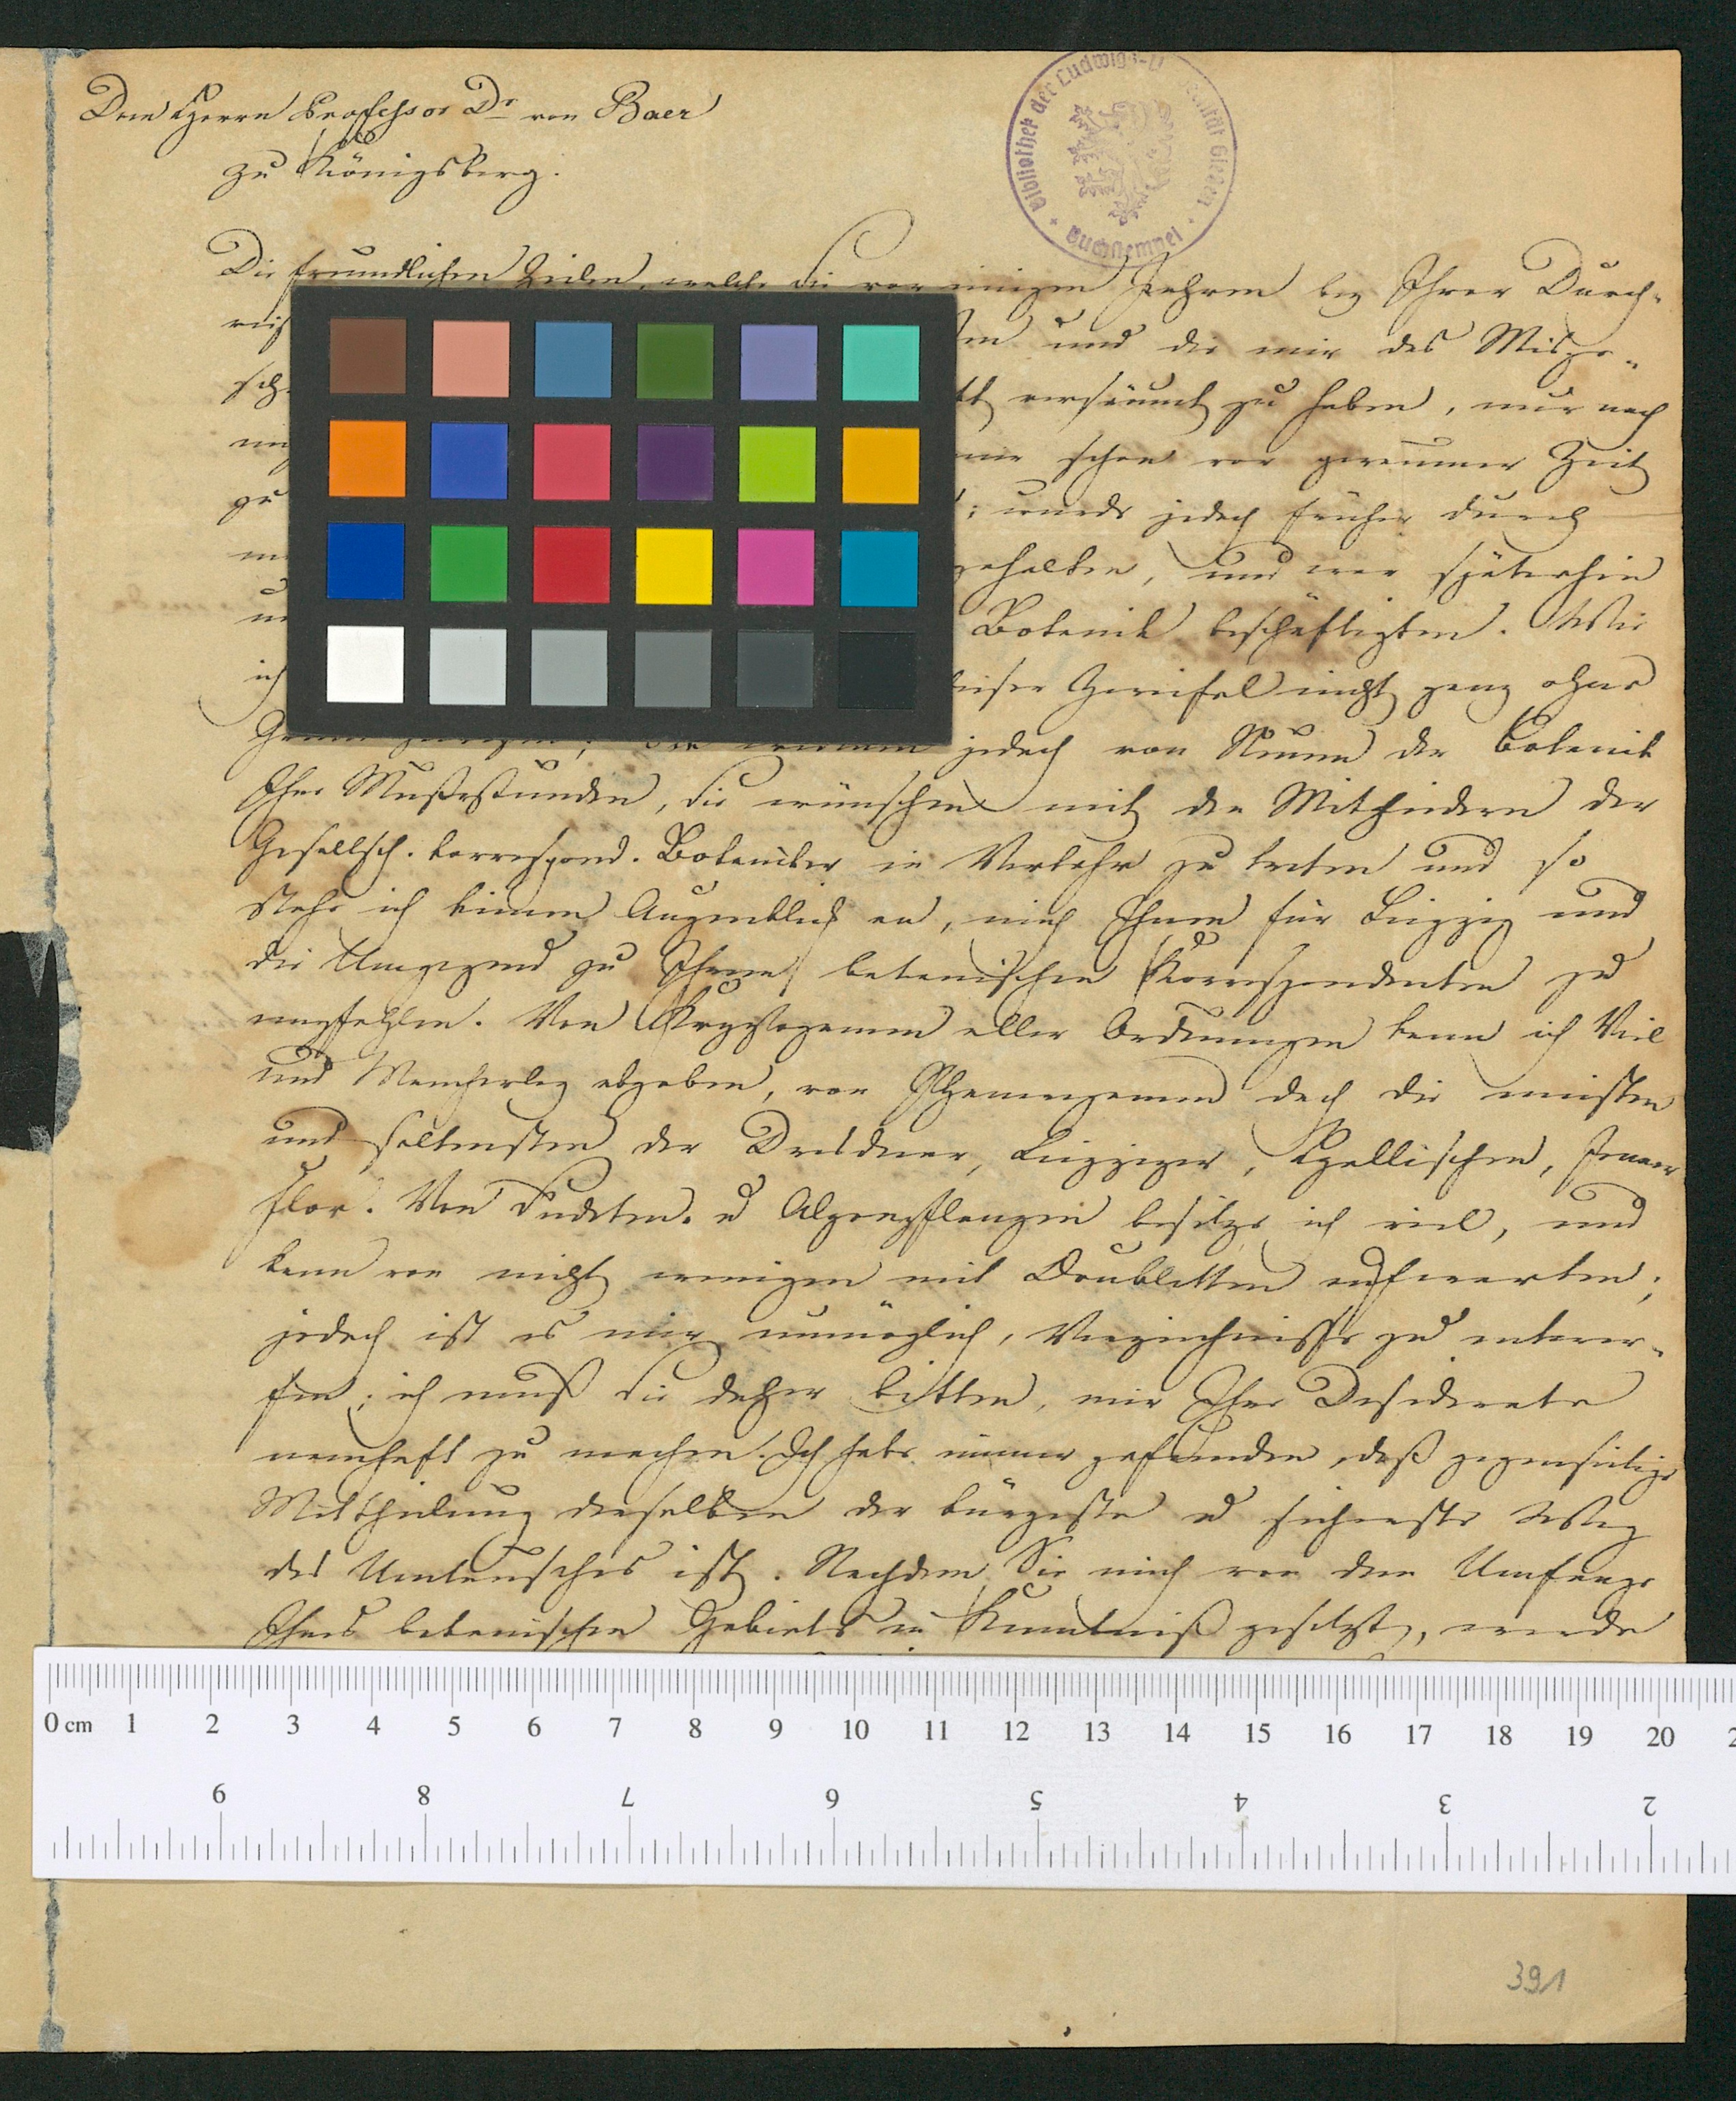 Dem Herrn Professor Dr von Baer
zu Königsberg.
Bibliothek der Ludwigs-U
Buchstempel
Die freundlichen Zeilen, welche Sie vor einigen Jahren bey Ihrer Durch-
reis und die mir das Misge-
sch versäumt zu haben, nur noch
schon vor geraumer Zeit
zu ; wurde jedoch früher durch
gehalten, und war späterhin
Botanik beschäftigten. Wie
ich dieser Zweifel nicht ganz ohne
jedoch von Neuem der Botanik
Ihre Mußestunden, Sie wünschen mit den Mitgliedern der
Gesellsch. korrespond. Botaniker in Verkehr zu treten und so
stehe ich keinen Augenblick an, mich Ihnen für Leipzig und
die Umgegend zu Ihrem botanischen Korrespondenten zu
empfehlen. Von Kryptogamen aller Ordnungen kann ich Viel
und Mancherley abgeben, von Phanerogamen doch die meisten
und seltensten der Dresdner, Leipziger, Hallischen, Jenaer
Flor. Von Sudeten- u Alpenpflanzen besitze ich viel, und
kann von nicht wenigen mit Doubletten aufwarten;
jedoch ist es mir unmöglich, Verzeichnisse zu entwer-
fen; ich muß Sie daher bitten, mir Ihre Desiderate
namhaft zu machen. Ich habe immer gefunden, daß gegenseitige
Mittheilung derselben der kürzeste u sicherste Weg
des Umtausches ist. Nachdem Sie mich von dem Umfange
Ihres botanischen Gebiets in Kenntniß gesetzt, werde
0 cm 1 2 3 4 5 6 7 8 9 10 11 12 13 14 15 16 17 18 19 20
9 8 7 6 5 4 3 2
391